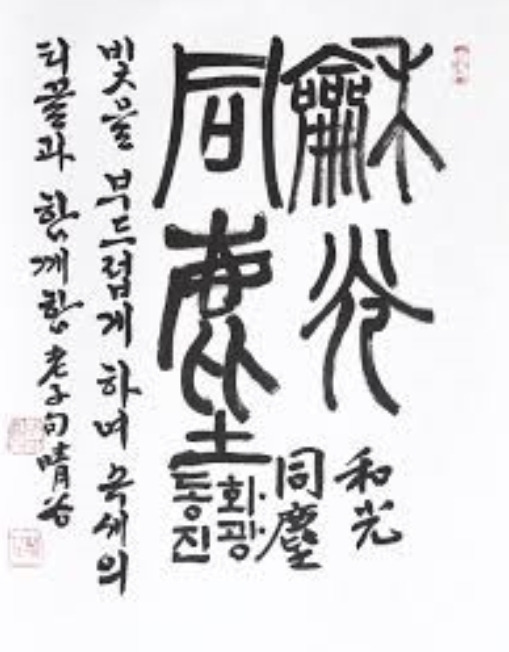 龢光
同塵
和光
同塵
화광
동진
빛을 부드럽게 하며 속세의
티끌과 함께함 老子句 晴谷